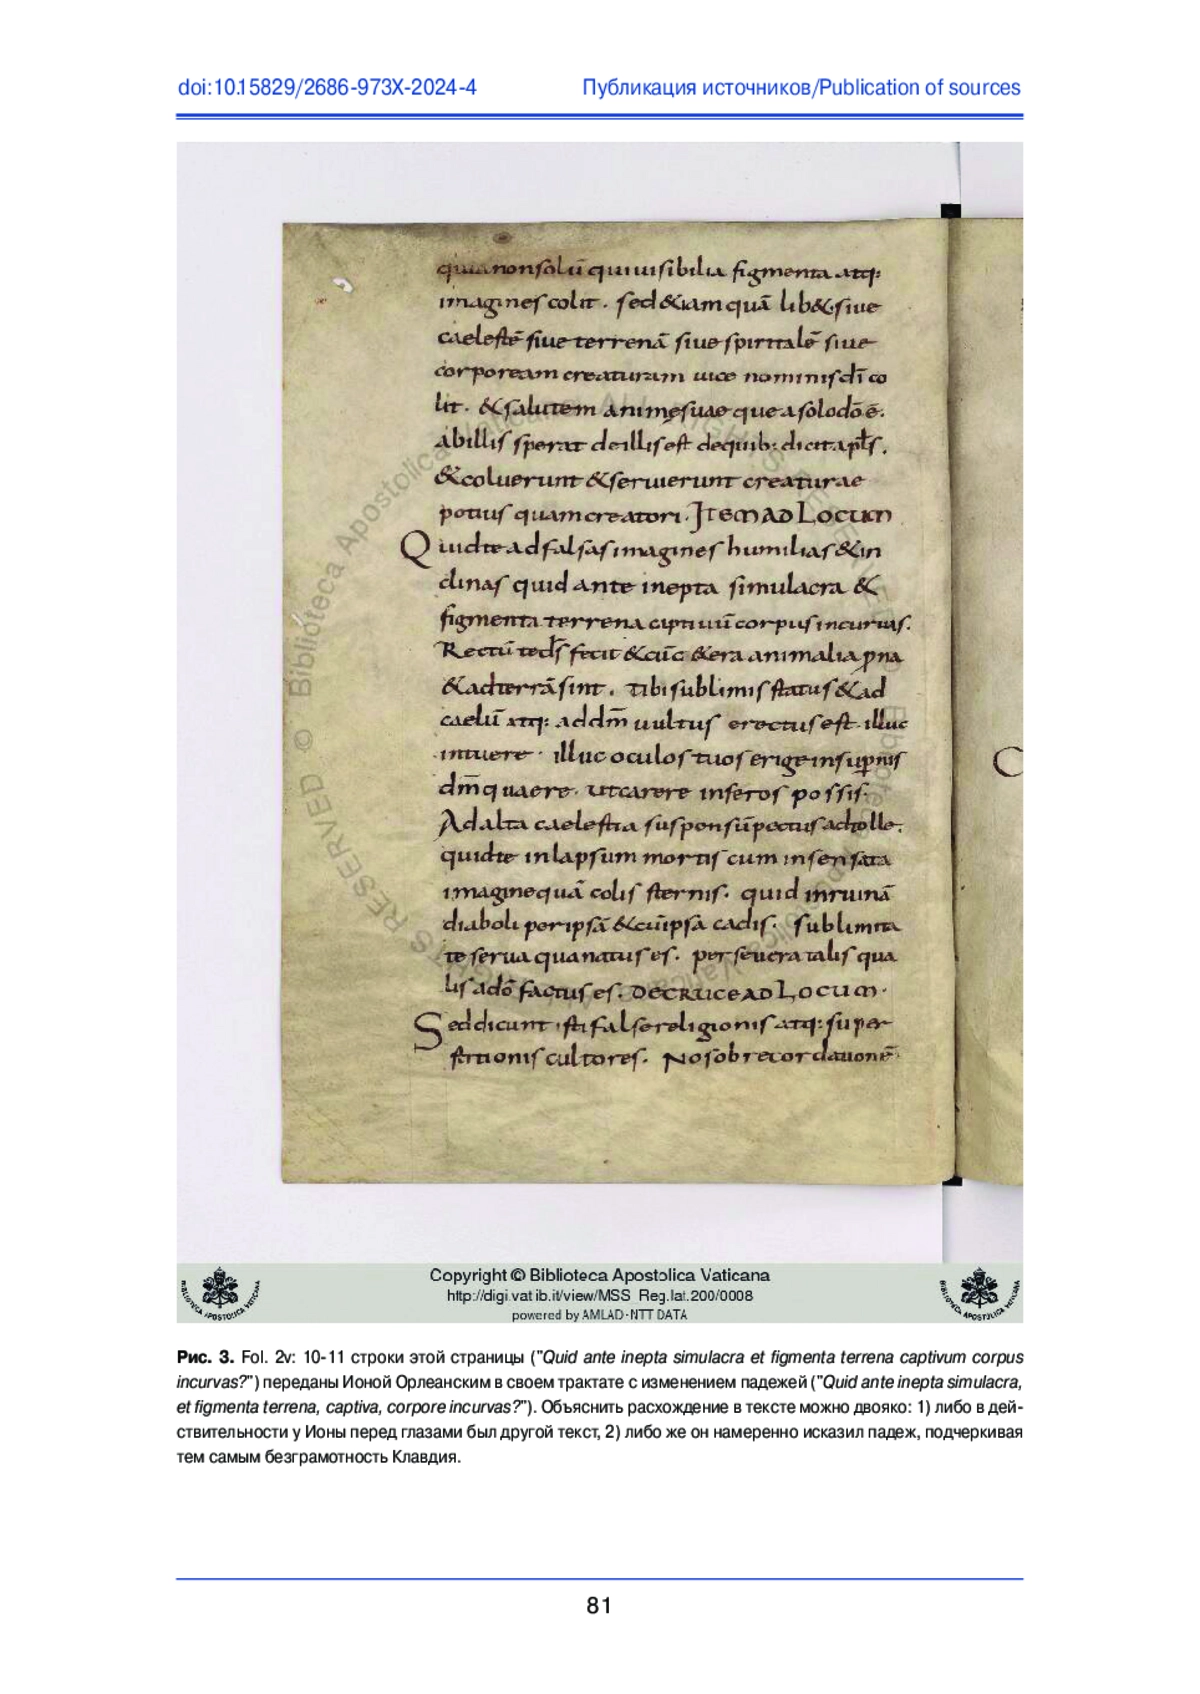 doi:10.15829/2686-973X-2024-4 Публикация источников/Publication of sources
quia non solū qui uisibilia figmenta atq:
imagines colit . sed &iam quā lib& siue
caelestē siue terrenā siue spiritalē siue
corpoream creaturam uice nominis dī co
lit . & salutem animę suae que a solo dō ē .
ab illis sperat de illis est de quib: dicit apls .
& coluerunt & seruierunt creaturae
potius quam creatori . ITEM AD LOCUM
Quid te ad falsas imagines humilias & in
clinas quid ante inepta simulacra &
figmenta terrena captiuū corpus incuruas .
Rectū te ds fecit & cū c&era animalia prna
& ad terrā sint . tibi sublimis status & ad
caelū atq: ad dm̄ uultus erectus est . illuc
intuere . illuc oculos tuos erige in supernis
dm̄ quaere . ut carere inferos possis .
Ad alta caelestia suspensū pectus adtolle .
quid te in lapsum mortis cum insensata
imagine quā colis sternis . quid in ruinā
diaboli per ipsā & cū ipsa cadis . sublimita
te serua qua natus es . perseuera talis qua
lis a dō factus es . DE CRUCE AD LOCUM .
Sed dicunt isti false religionis atq: super
stitionis cultores . Nos ob recordationē
C
© Biblioteca Apostolica Vaticana ALL RIGHTS RESERVED
Copyright © Biblioteca Apostolica Vaticana
http://digi.vatlib.it/view/MSS_Reg.lat.200/0008
powered by AMLAD-NTT DATA
BIBLIOTECA APOSTOLICA VATICANA
BIBLIOTECA APOSTOLICA VATICANA
Рис. 3. Fol. 2v: 10-11 строки этой страницы ("Quid ante inepta simulacra et figmenta terrena captivum corpus
incurvas?") переданы Ионой Орлеанским в своем трактате с изменением падежей ("Quid ante inepta simulacra,
et figmenta terrena, captiva, corpore incurvas?"). Объяснить расхождение в тексте можно двояко: 1) либо в дей-
ствительности у Ионы перед глазами был другой текст, 2) либо же он намеренно исказил падеж, подчеркивая
тем самым безграмотность Клавдия.
81